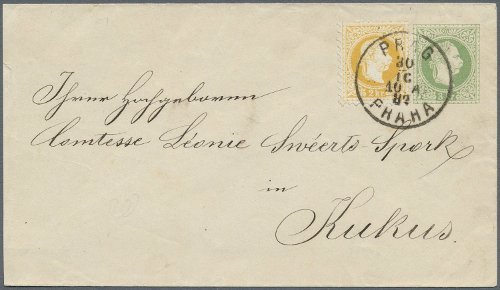 PRAG
30
10
10 A
82
PRAHA
2 kr
Ihrer Hochgeboren
Comtesse Léonie Swéerts-Spork
in
Kukus.